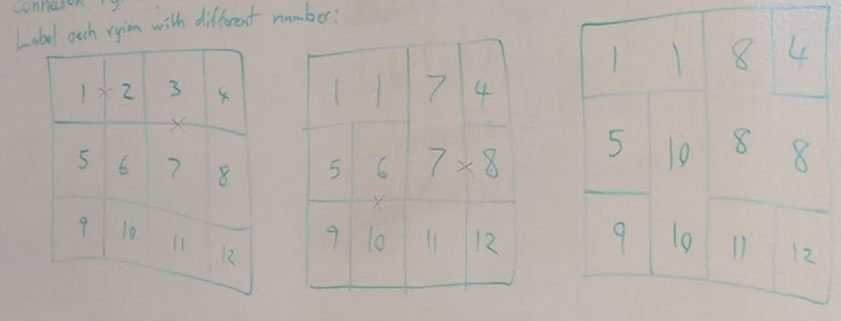 Label each rgion with different number:
1 × 2 3 4
×
5 6 7 8
9 10 11 12
1 1 7 4
5 6 7 × 8
×
9 10 11 12
1 1 8 4
5 10 8 8
9 10 11 12